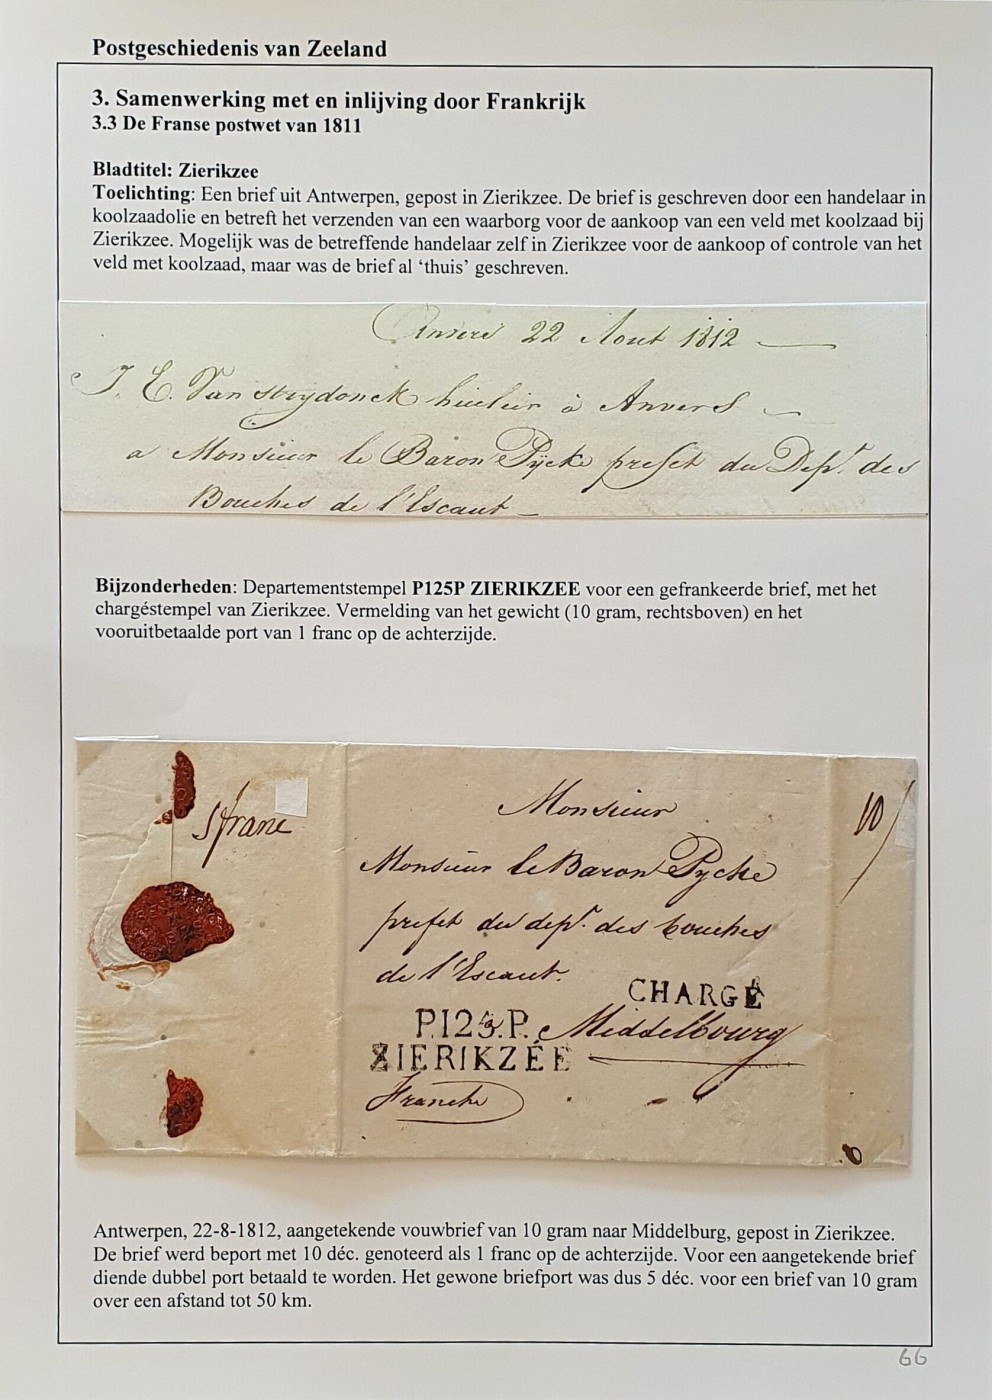 Postgeschiedenis van Zeeland
3. Samenwerking met en inlijving door Frankrijk
3.3 De Franse postwet van 1811
Bladtitel: Zierikzee
Toelichting: Een brief uit Antwerpen, gepost in Zierikzee. De brief is geschreven door een handelaar in
koolzaadolie en betreft het verzenden van een waarborg voor de aankoop van een veld met koolzaad bij
Zierikzee. Mogelijk was de betreffende handelaar zelf in Zierikzee voor de aankoop of controle van het
veld met koolzaad, maar was de brief al ‘thuis’ geschreven.
Anvers 22 Aout 1812
J. E. Van Strydonck huilier à Anvers
a Monsieur le Baron Pycke prefet du Dept. des
Bouches de l'Escaut
Bijzonderheden: Departementstempel P125P ZIERIKZEE voor een gefrankeerde brief, met het
chargéstempel van Zierikzee. Vermelding van het gewicht (10 gram, rechtsboven) en het
vooruitbetaalde port van 1 franc op de achterzijde.
1 franc
Monsieur
10
Monsieur le Baron Pycke
prefet du dept. des bouches
de l'Escaut.
CHARGÉ
P.125.P. Middelbourg
ZIERIKZÉE
Franche
Antwerpen, 22-8-1812, aangetekende vouwbrief van 10 gram naar Middelburg, gepost in Zierikzee.
De brief werd beport met 10 déc. genoteerd als 1 franc op de achterzijde. Voor een aangetekende brief
diende dubbel port betaald te worden. Het gewone briefport was dus 5 déc. voor een brief van 10 gram
over een afstand tot 50 km.
66